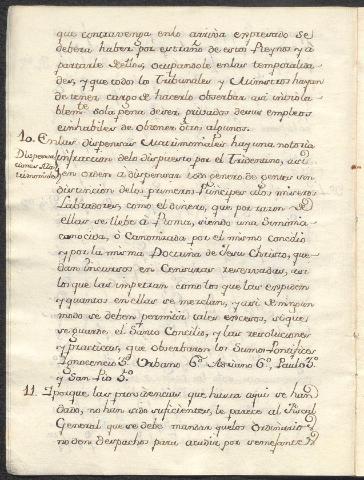 que contravenga en lo arriba expresado se
debera haber por estraño de estos Reynos y a
partarle de ellos, ocupandole en las temporalida
des, y que todos los Tribunales y Ministros hayan
de tener cargo de hacerlo observar asi inviola
blem.te sola pena de ser privados de sus empleos
e inhabiles de obtener otros algunos.
10. En las dispensas Matrimoniales hay una notoria
Dispensa
ciones Ma
trimoniales
infraccion de lo dispuesto por el Tridentino, asi
en orden a dispensar todo genero de gentes sin
distincion de los primeros Principes a los miseros
Labradores, como el dinero, que por razon de
ellas se llebe à Roma, siendo una Simonia
conocida, ò Canonizada por el mismo Concilio
y por la misma Doctrina de Jesu Christo, que
dan incursos en Censuras reservadas, asi
los que las impetran como los que las expiden
y quantos en ellas se mezclan, y asi de ningun
modo se deben permitir tales excesos, sì que
se guarde, el Santo Concilio, y las resoluciones
y practicas, que observaron los Sumos Pontifices
Innocencio 8.º Urbano 6.º Adriano 6.º, Paulo 3.º
y San Pio 5.º
11. Y porque las providencias que hasta aqui se han
dado, no han sido suficientes, le parece al Fiscal
General que se debe mandar que los Ordinarios
no den despachos para acudir por semejantes